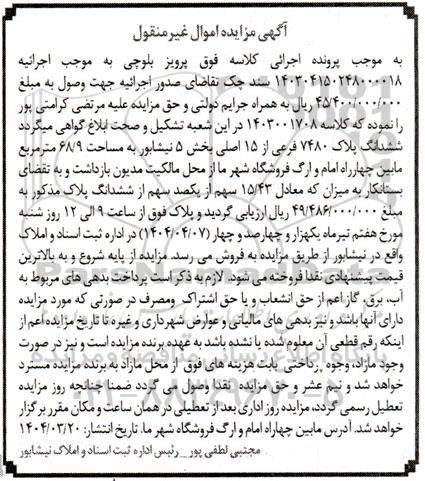 آگهی مزایده اموال غیر منقول
به موجب پرونده اجرائی کلاسه فوق پرویز بلوچی به موجب اجرائیه
۱۴۰۳۰۴۱۵۰۲۴۸۰۰۰۰۱۸ سند چک تقاضای صدور اجرائیه جهت وصول به مبلغ
۴۵/۴۰۰/۰۰۰/۰۰۰ ریال به همراه جرایم دولتی و حق مزایده علیه مرتضی کرامتی پور
را نموده که کلاسه ۱۴۰۳۰۰۱۷۰۸ در این شعبه تشکیل و صحت ابلاغ گواهی میگردد
ششدانگ پلاک ۷۴۸۰ فرعی از ۱۵ اصلی بخش ۵ نیشابور به مساحت ۶۸/۹ مترمربع
مابین چهارراه امام و ارگ فروشگاه شهر ما از محل مالکیت مدیون بازداشت و به تقضای
بستانکار به میزان که معادل ۱۵/۴۳ سهم از یکصد سهم از ششدانگ پلاک مذکور به
مبلغ ۴۹/۴۸۶/۰۰۰/۰۰۰ ریال ارزیابی گردید و پلاک فوق از ساعت ۹ الی ۱۲ روز شنبه
مورخ هفتم تیرماه یکهزار و چهارصد و چهار (۱۴۰۴/۰۴/۰۷) در اداره ثبت اسناد و املاک
واقع در نیشابور از طریق مزایده به فروش می رسد. مزایده از پایه شروع و به بالاترین
قیمت پیشنهادی نقدا فروخته می شود. لازم به ذکر است پرداخت بدهی های مربوط به
آب، برق، گاز اعم از حق انشعاب و یا حق اشتراک ومصرف در صورتی که مورد مزایده
دارای آنها باشد و نیز بدهی های مالیاتی و عوارض شهرداری و غیره تا تاریخ مزایده اعم از
اینکه رقم قطعی آن معلوم شده یا نشده باشد به عهده برنده مزایده است و نیز در صورت
وجود مازاد، وجوه پرداختی بابت هزینه های فوق از محل مازاد به برنده مزایده مسترد
خواهد شد و نیم عشر و حق مزایده نقدا وصول می گردد ضمنا چنانچه روز مزایده
تعطیل رسمی گردد، مزایده روز اداری بعد از تعطیلی در همان ساعت و مکان مقرر برگزار
خواهد شد. آدرس مابین چهاراه امام و ارگ فروشگاه شهر ما. تاریخ انتشار: ۱۴۰۴/۰۳/۲۰
مجتبی لطفی پور _ رئیس اداره ثبت اسناد و املاک نیشابور